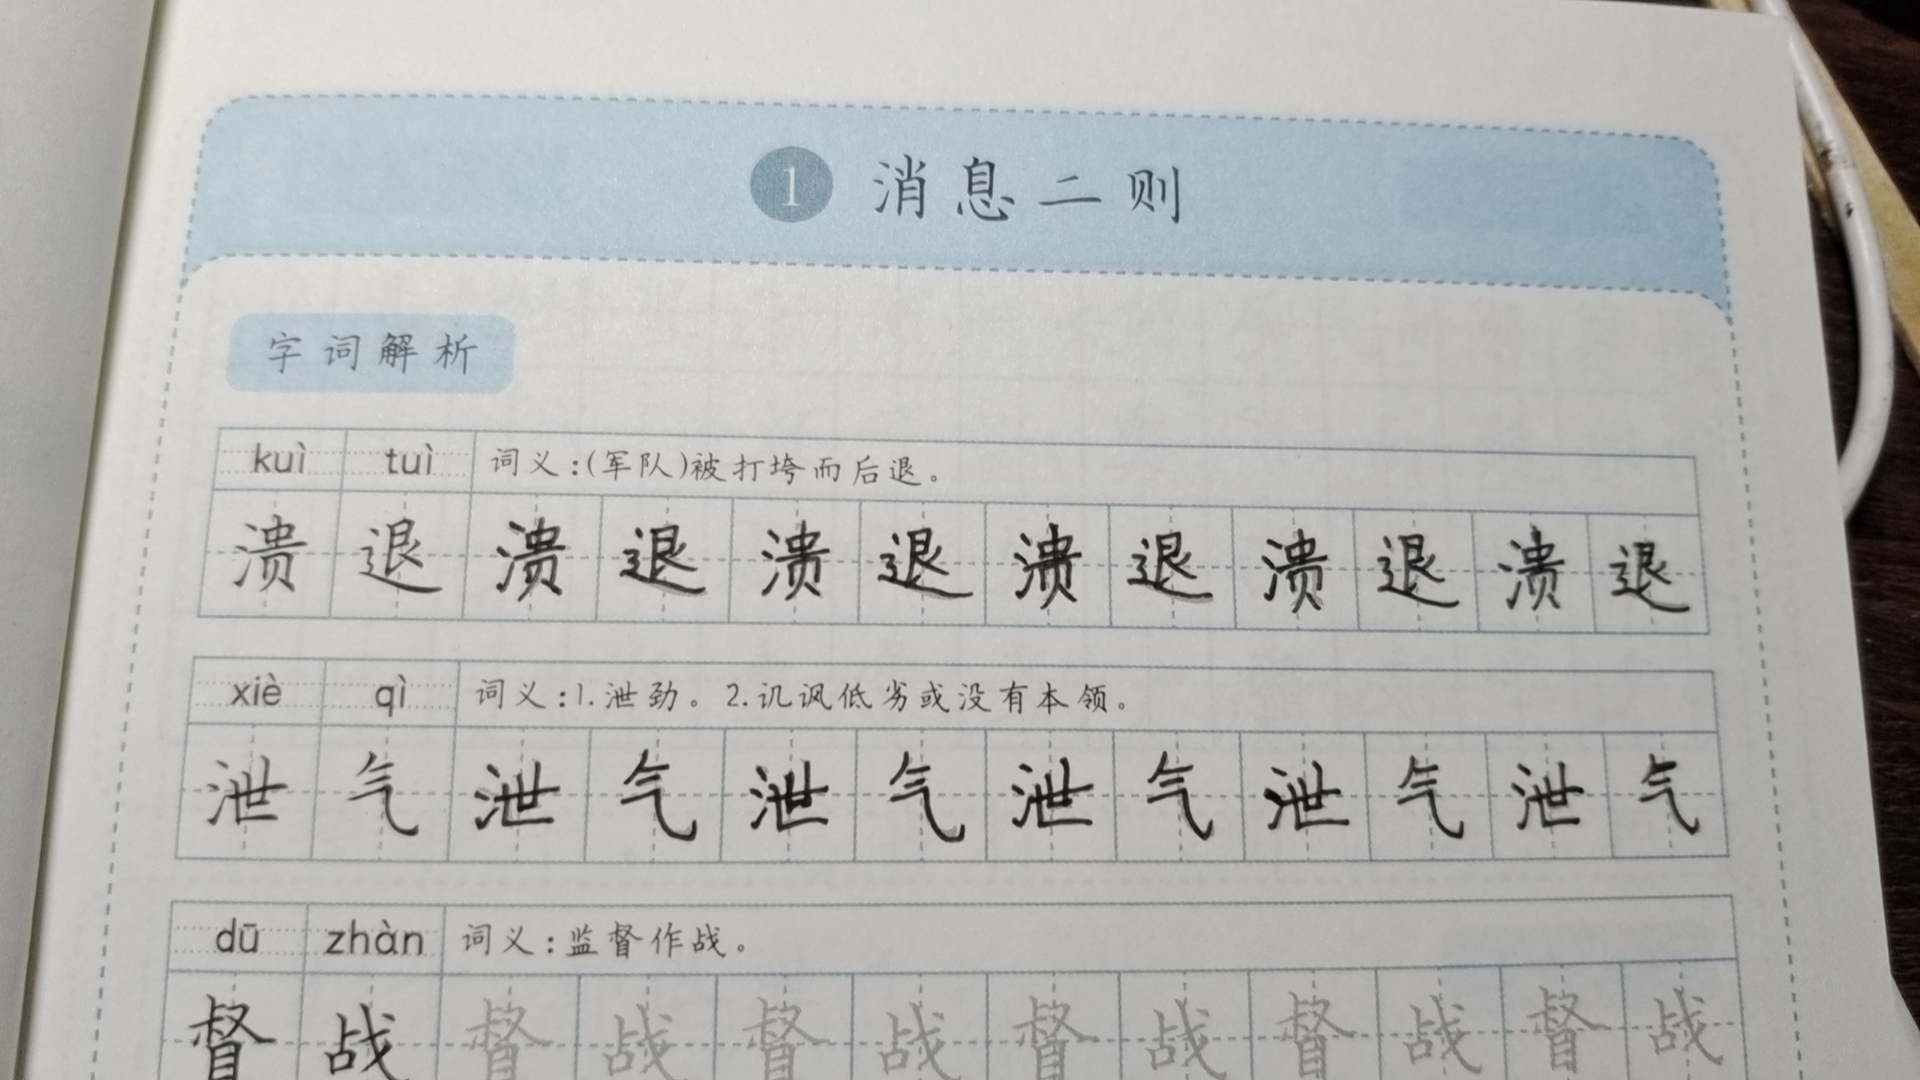 1 消息二则
字词解析
kuì tuì 词义:(军队)被打垮而后退。
溃退溃退溃退溃退溃退溃退
xiè qì 词义:1.泄劲。2.讥讽低劣或没有本领。
泄气泄气泄气泄气泄气泄气
dū zhàn 词义:监督作战。
督战督战督战督战督战督战